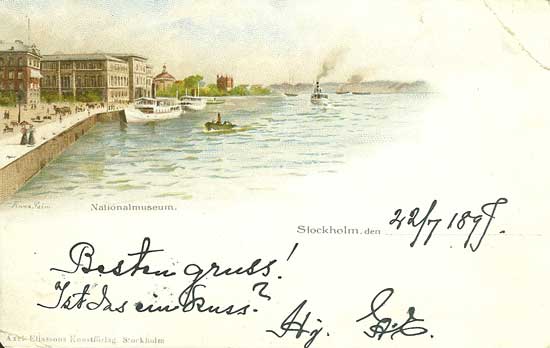 Anna Palm
Nationalmuseum.
Stockholm, den 22/7
Besten gruss!
Ist das ein Kuss?
Axel Eliassons Konstförlag. Stockholm